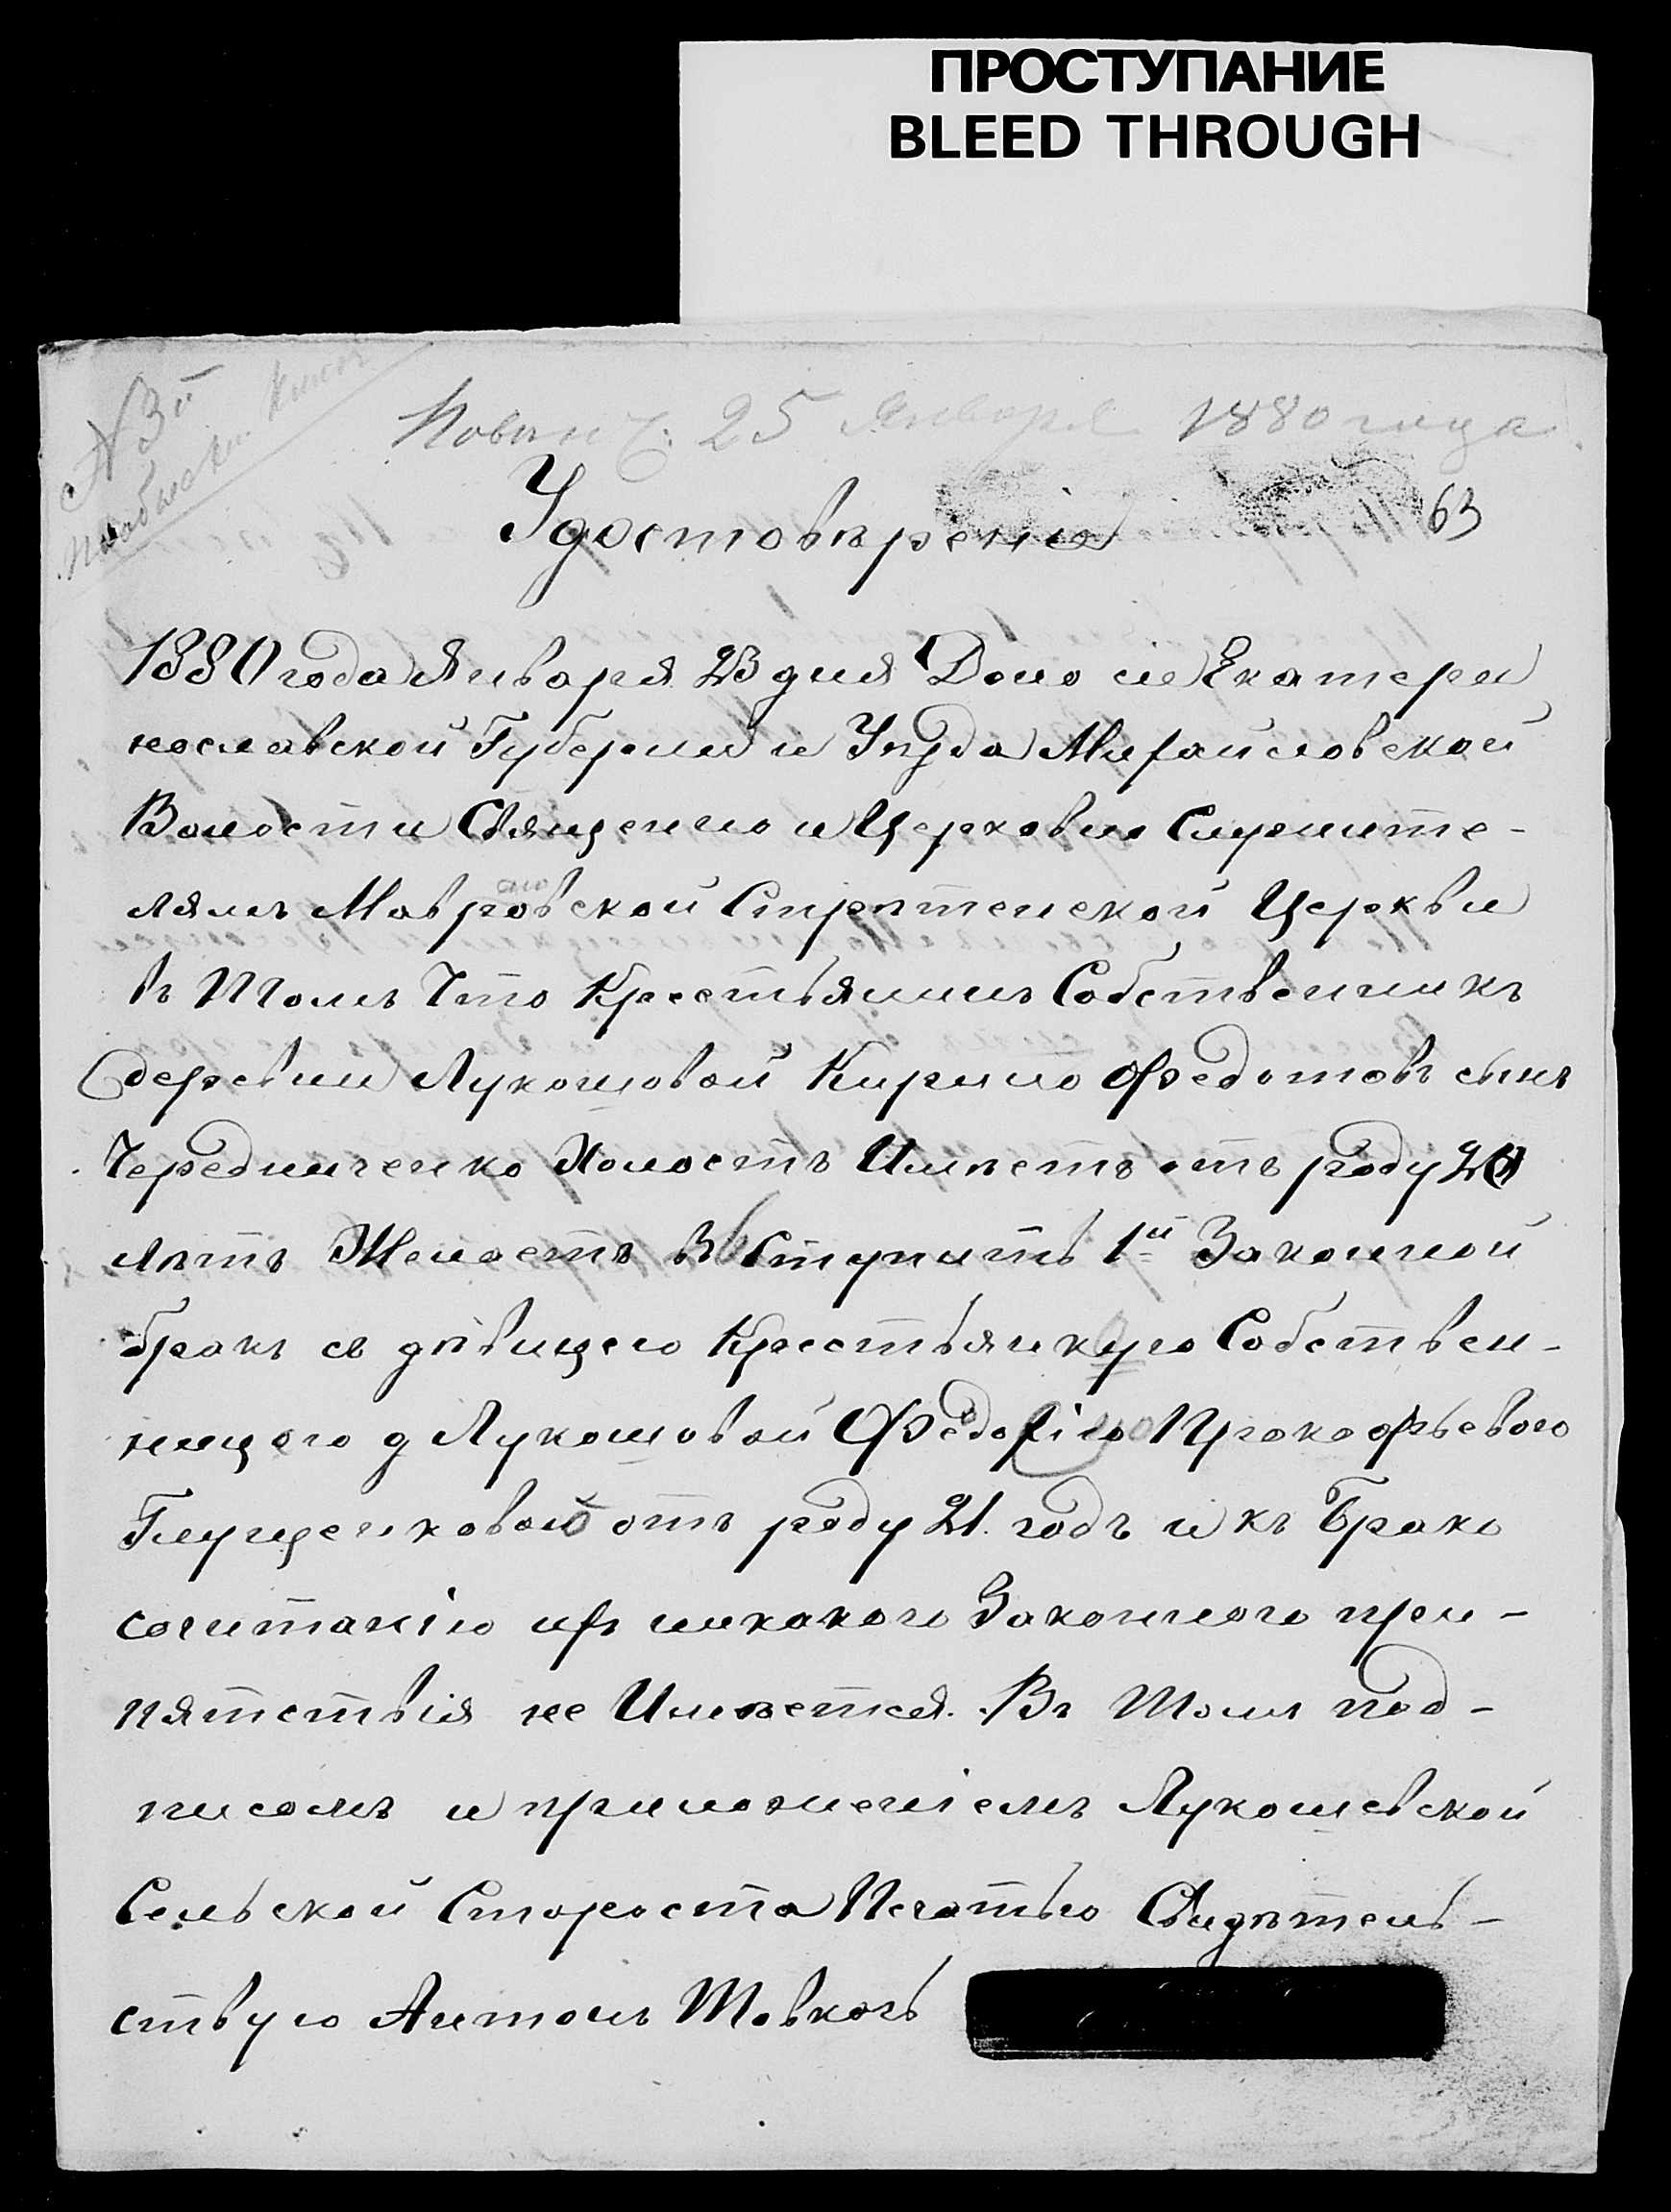 ПРОСТУПАНИЕ
BLEED THROUGH
№ 3й
25 Января 1880 года
Удостовѣрение
63
1880 года Января 23 дня Дано сие Екатери
нославской Губернии и Уѣзда Михайловской
Волости Священно и Церковно Служите-
лямъ Мавровской Стрѣтенской Церкви
въ Томъ Что Крестьянинъ Собственникъ
деревни Лукошовой Кирило Федотовъ сынъ
Чередниченко Холостъ Имѣетъ отъ роду 20
лѣтъ Желаетъ Вступить 1й Законной
бракъ съ дѣвицею Крестьянкую Собствен-
ницею д Лукошовой Федо Прокофьевою
Глущенковой отъ роду 21 годъ и къ Брако
сочитанію ихъ никакого Законного преи-
пятствія не Имѣется. Въ Томъ под-
писомъ и приложеніемъ Лукошевской
Сельской Староста Печатью Свидѣтель-
ствую Антонъ Товкачь